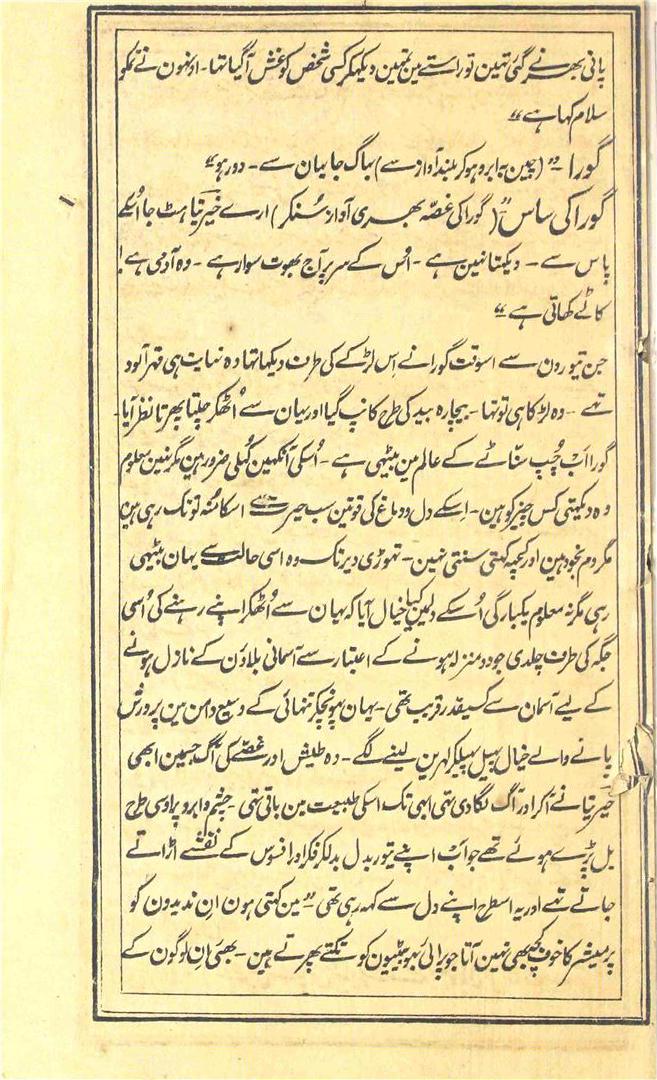 پانی بھرنے گئی تھین تو راستے مین تمہین دیکھکر کسی شخص کو غش آگیا تھا۔ اونہون نے تمکو
سلام کہا ہے“
گورا۔ ”(چین بہ ابرو ہوکر بلند آواز سے) بھاگ جا یہان سے۔ دور ہو“
گورا کی ساس ”(گورا کی غصّہ بھری آواز سُنکر) ارے خیرتیا ہٹ جا اُسکے
پاس سے۔ دیکھتا نہین ہے۔ اُس کے سر پر آج بھوت سوار ہے۔ وہ آدمی ہے!
کاٹے کھاتی ہے“
جن تیورون سے اسوقت گورا نے اِس لڑکے کی طرف دیکھا تھا وہ نہایت ہی قہر آلود
تھے۔ وہ لڑکا ہی تو تھا۔ بیچارہ بید کی طرح کانپ گیا اور یہان سے اُٹھکر چلتا پھرتا نظر آیا۔
گورا اَب چُپ سنّاٹے کے عالم مین بیٹھی ہے۔ اُسکی آنکھین کُھلی ضرور ہین مگر نہین معلوم
وہ دیکھتی کس چیز کو ہین۔ اِسکے دل و دماغ کی قوتین سب حیرت سے اسکا مُنہ تو تک رہی ہین
مگر دم بخود ہین اور کچھ کہتی سنتی نہین۔ تھوڑی دیر تک وہ اسی حالت سے یہان بیٹھی
رہی مگر نہ معلوم یکبارگی اُسکے دلمین کیا خیال آیا کہ یہان سے اُٹھکر اپنے رہنے کی اُسی
جگہ کی طرف چلدی جو دو منزلہ ہونے کے اعتبار سے آسمانی بلاؤن کے نازل ہونے
کے لیے آسمان سے کسیقدر قریب تھی۔ یہان پہونچکر تنہائی کے وسیع دامن مین پرورش
پانے والے خیال پھیل پھیلکر لہرین لینے لگے۔ وہ طیش اور غصّے کی آگ جسمین ابھی
خیرتیا نے آکر اور آگ لگادی تھی ابھی تک اسکی طبیعت مین باقی تھی۔ چشم و ابرو پر اوسی طرح
بل پڑے ہوئے تھے جو اَب اپنے تیور بدل بدلکر فکر اور افسوس کے نقشے اڑاتے
جاتے تھے اور یہ اسطرح اپنے دل سے کہہ رہی تھی۔ ”مین کہتی ہون اِن ندیدون کو
پرمیشر کا خوف کچھ بھی نہین آتا جو پرائی بہو بیٹیون کو تکتے پھرتے ہین۔ بھئی اِن لوگون کے